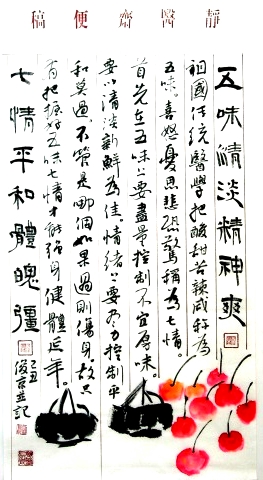 靜醫齋便稿
五味清淡精神爽
祖國传統醫學把酸甜苦辣咸称為
五味。喜怒憂思悲恐驚稱為七情。
首先在五味上要盡量控制不宜厚味。
要以清淡新鮮為佳。情绪上要尽力控制平
和莫過。不管是哪個如果過則傷身。故只
有把握好五味七情才能强身健體延年。
七情平和體魄彊
己丑
俊京並記